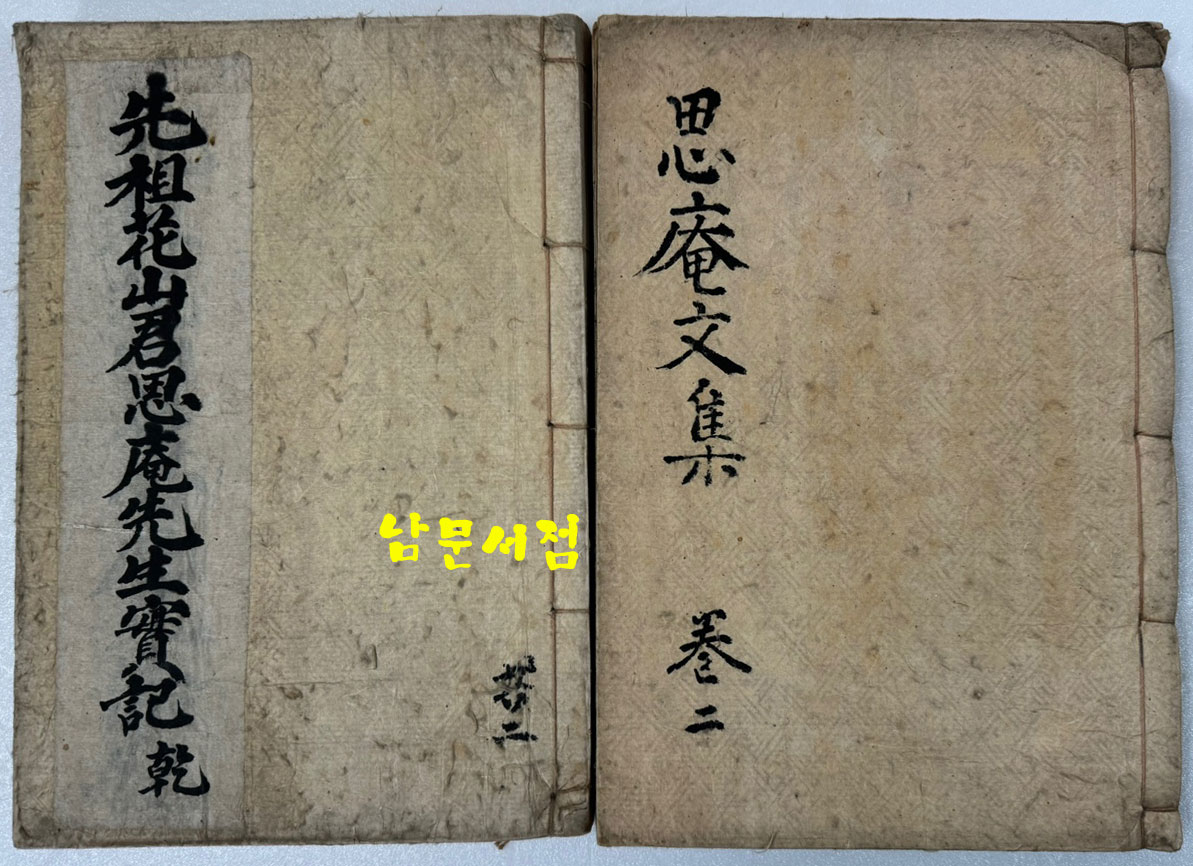 先祖花山君思庵先生實記 乾
共二
思庵文集 卷二
남문서점